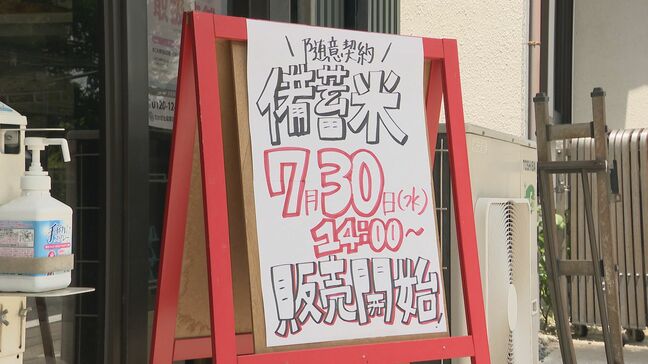 \ 随意契約 /
備蓄米
7月30日(水)
14:00～
販売開始
0120-12
TOSHIBA